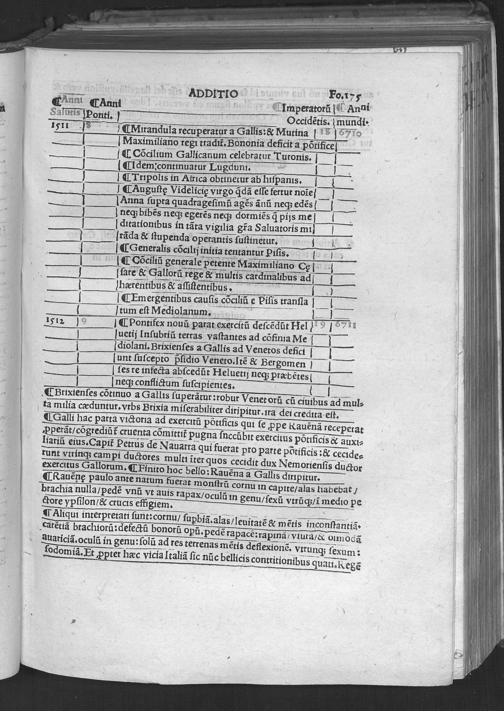 ADDITIO Fo.175
¶Anni ¶Anni ¶Imperatorū ¶Anni
Salutis Ponti. Occidētis. mundi.
1511 8 ¶Mirandula recuperatur a Gallis: & Mutina 18 6710
Maximiliano regi tradit̄. Bononia deficit a pōtifice
¶Cōcilium Gallicanum celebratur Turonis.
¶Idem: continuatur Lugduni.
¶Tripolis in Africa obtinetur ab hispanis.
¶Augustę Videlicię virgo q̄dā esse fertur noīe
Anna supra quadragesimū agēs ānū neq; edēs
neq; bibēs neq; egerēs neq; dormiēs q̄ pijs me
ditationibus in tāta vigilia gr̄a Saluatoris mi
rāda & stupenda operantis sustinetur.
¶Generalis cōcilij initia tentantur Pisis.
¶Cōciliū generale petente Maximiliano Cę
sare & Gallorū rege & multis cardinalibus ad
hærentibus & assistentibus.
¶Emergentibus causis cōciliū e Pisis transla
tum est Mediolanum.
1512 9 ¶Pontifex nouū parat exercitū descēdūt Hel 19 6711
uetij Insubriū terras vastantes ad cōfinia Me
diolani. Brixienses a Gallis ad Venetos defici
unt suscepto p̄sidio Veneto. Itē & Bergomen
ses re infecta abscedūt Heluetij neq; præbētes
neq; conflictum suscipientes.
¶Brixienses cōtinuo a Gallis superātur: robur Venetorū cū ciuibus ad mul⸗
ta milia cæduntur. vrbs Brixia miserabiliter diripitur. ira dei credita est.
¶Galli hac parta victoria ad exercitū pōtificis qui se ꝓpe Rauēnā receperat
ꝓperāt/ cōgrediūt̄ cruenta cōmittit̄ pugna succūbit exercitus pōtificis & auxi⸗
liariū eius. Capit̄ Petrus de Nauarra qui fuerat pro parte pōtificis: & cecide⸗
runt vtrinq; campi ductores multi iter quos cecidit dux Nemoriensis ductor
exercitus Gallorum. ¶Finito hoc bello: Rauēna a Gallis diripitur.
¶Rauēnę paulo ante natum fuerat monstrū cornu in capite/ alas habebat/
brachia nulla/ pedē vnū vt auis rapax/ oculū in genu/ sexū vtrūq;/ ī medio pe
ctore ypsilon/ & crucis effigiem.
¶Aliqui interpretati sunt: cornu/ supbiā. alas/ leuitatē & mētis inconstantiā.
carētiā brachiorū: defectū bonorū opū. pedē rapacē: rapinā/ vsurā/ & oīmodā
auariciā. oculū in genu: solū ad res terrenas mētis deflexionē. vtrunq; sexum:
sodomiā. Et ꝓpter hæc vicia Italiā sic nūc bellicis contritionibus quati. Regē